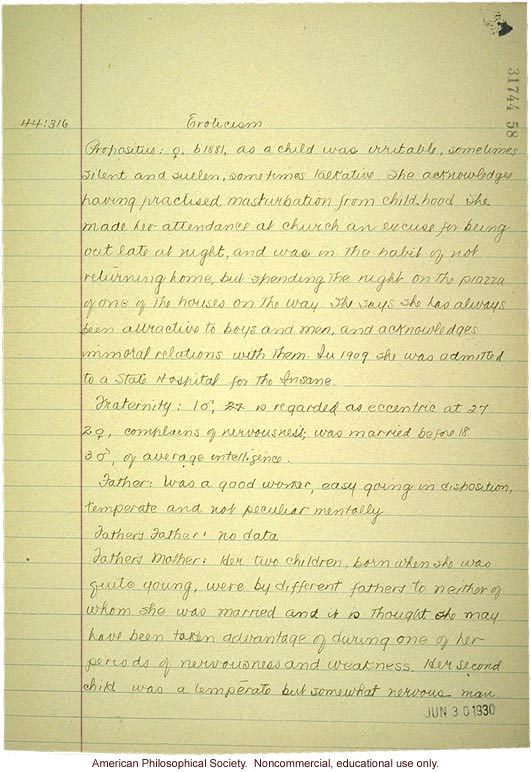 31744 58
44:316 Eroticism
Propositus: ♀, b1881, as a child was irritable, sometimes
silent and sullen, sometimes talkative. She acknowledges
having practised masturbation from child-hood. She
made her attendance at church an excuse for being
out late at night, and was in the habit of not
returning home, but spending the night on the piazza
of one of the houses on the way. She says she has always
been attractive to boys and men, and acknowledges
immoral relations with them. In 1909 she was admitted
to a State Hospital for the Insane.
Fraternity: 1♂, 27 is regarded as eccentric at 27
2♀, complains of nervousness; was married before 18
3♂, of average intelligence.
Father: Was a good worker, easy going in disposition,
temperate and not peculiar mentally
Fathers Father: no data
Fathers Mother: Her two children, born when she was
quite young, were by different fathers to neither of
whom she was married and it is thought she may
have been taken advantage of during one of her
periods of nervousness and weakness. Her second
child was a temperate but somewhat nervous man.
JUN 30 1930
American Philosophical Society. Noncommercial, educational use only.